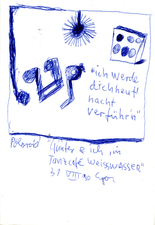 "ich werde
dich heut'
nacht
verführ'n"
Polaroid "Günter & ich, in
Tanzcafé WEISSWASSER"
31 VIII 90